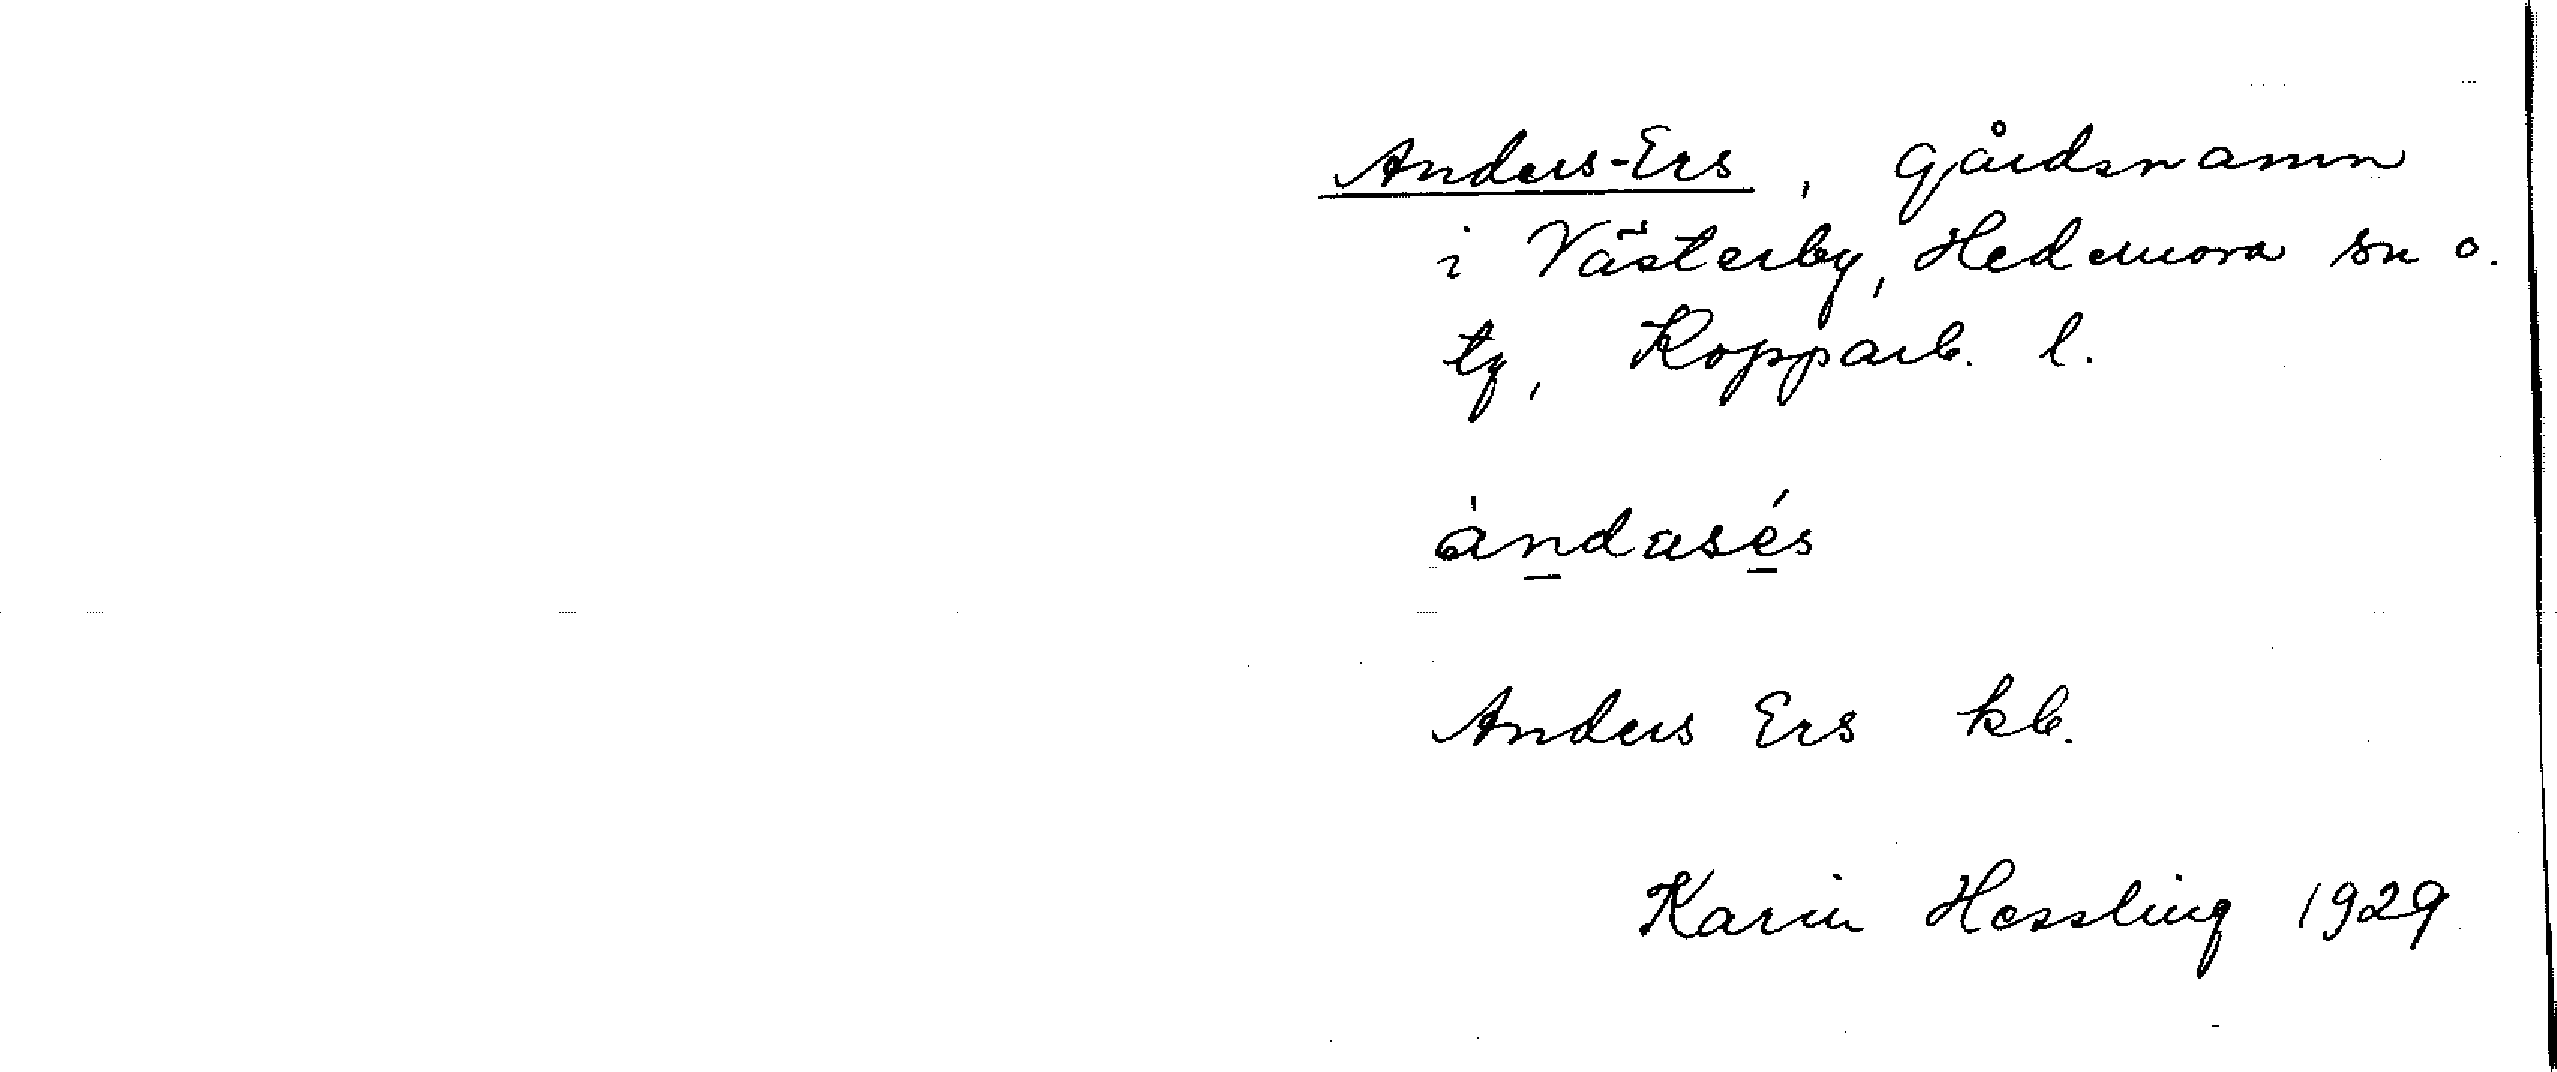 Anders-Ers, gårdsnamn
i Västerby, Hedemora sn o.
tg, Kopparb. l.
àndasés
Anders Ers kb.
Karin Hessling 1929